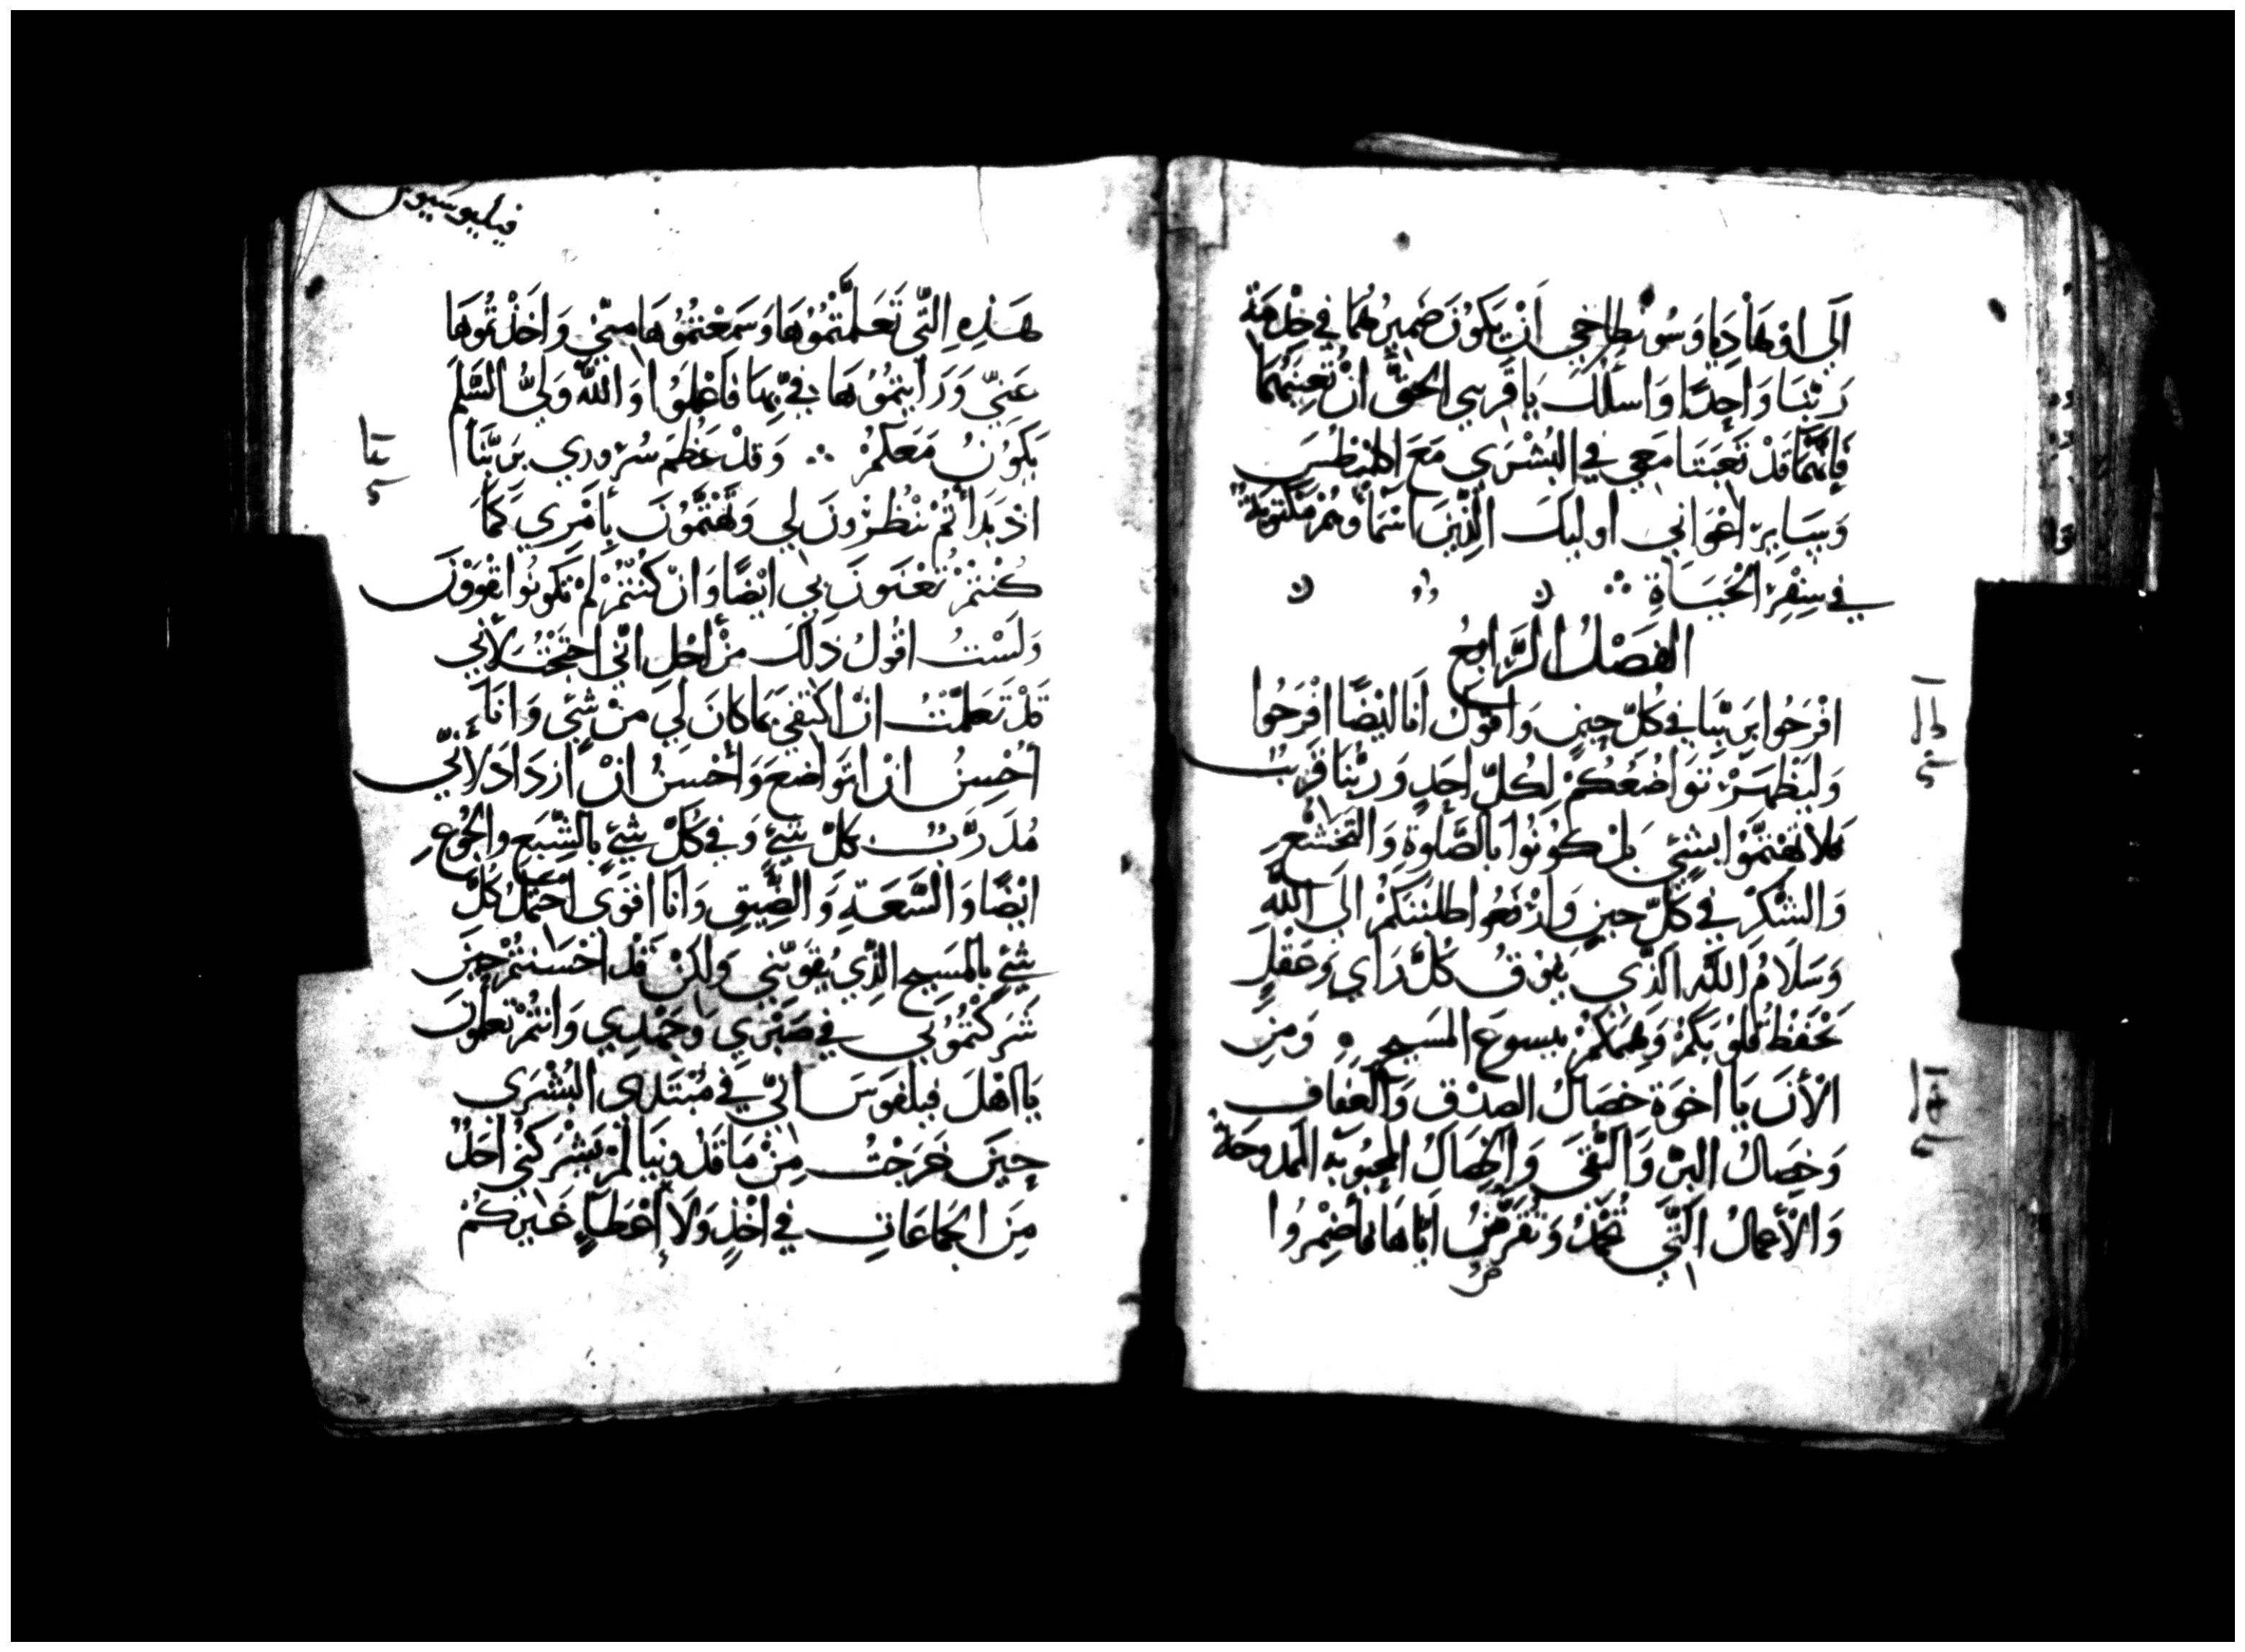 الَي اوهَادِيا وَسُونطاخي اَنْ يَكوُنَ ضَميرُهُمَا في خِدْمَة
رَبّنَا وَاحِدًا وَاسلُكَ يَا قَريبي الحَقّ انْ تُعِينَهُمَا
فَإنّهُمَا قَدْ تَعِبَتَا مَعِي فِي البُشْرَي مَعَ اقليمنطُس
وَسَايِر اعْوَاني اوليكَ الذّينَ اسْمَاوهُمْ مَكتوبَة
في سِفْرِ الحَيَاةِ
الفَصْلُ الرَّابِعُ
افْرَحُوا بِرَبّنَا في كُلّ حِينٍ وَاقولُ انَا ايْضًا افْرَحُوا
وَليَظهَرْ تَوَاضُعُكُمْ لكُلّ احَدٍ وَرَبّنَا قَريبٌ
فَلا تَهتمَّوُا بشَيٍ بَل كوُنُوا بالصَّلوةِ وَالتَخَشّع
وَالشكْر في كلّ حين وَارْفَعُوا طلبَتَكُمْ الَى اللّه
وَسَلَامُ اللّه الّذي يَفوْقُ كُلَّ رَاي وَعَقْلٍ
يَحْفَظُ قُلُوبَكُمْ وَهِمَمَكُمْ بيسوعَ المَسيح ه وَمِن
الْأنَ يَا اخوَة خصَالُ الصِدْق وَالعَفاف
وَخِصَالُ البرّ وَالتُّقَى وَالخِصَالُ المحبُوبَه المَمدوحَةُ
وَالأعمالُ الَّتّي تُحْمَدُ وَتُقَرّضُ ايّاهَا فأضْمِرُوا
فيليوسيوس
هَذِهِ الَّتّي تَعَلَّمْتُمُوُهَا وَسَمعْتمُوُهَا مِنّي وَاخَذْتُمُوهَا
عَنيّ وَرَأَيْتمُوُهَا فيَّ بهَا فَاعْمَلوُا وَاللّهُ وَليُّ السَّلم
يَكوُنُ مَعَكمُْ ∴ وَقدْ عَظُمَ سُرُوري برَبّنَا
اذ بَدَأتُمْ تنْظُروُنَ لي وَتَهْتمُّوُنَ بأَمْري كَمَا
كُنْتمُْ تَعْنَوْنَ بي ايْضًا وَانْ كنتُمْ لمْ تَكوُنُوا تقوَوْنَ
وَلَسْتُ اقُولُ ذَلكَ مِنْ أجْل انّي احتجَجْتُ لأنّي
قَدْ تَعَلمَّتُ انْ اكتفيَ بمَا كانَ لي مَنْ شيَيٍ وَانَا
أحْسِنُ انْ اتوَاضَعَ وَأحْسِنُ انْ ازدَادَ لأنّي
مُدَرَّبٌ بكلّ شَيٍ وَفي كُلّ شيٍ بالشِّبَعِ وَالجُوُعِ
ايْضًا وَالسَّعَةِ وَالضِّيقِ وَانَا اقوَى احتَملُ كُلَّ
شَيٍ بالمَسيح الّذِي يُقَوّيني وَلكنْ قَدْ احْسَنْتُمْ حينَ
شَرَكْتمُوُني في صَبْري وَجَهْدي وَانْتُمْ تعلَموُنَ
يَا اهْلَ فيلفوسَ انّي في مُبْتَدَى البُشْرَى
حِينَ خَرَجْتُ مِنْ مَاقَدُونيَا لَمْ يَشْرَكنُي احَدٌ
مِنَ الجمَاعَاتِ في اخْذٍ وَلَا إعْطَاءٍ غَيركُمْ